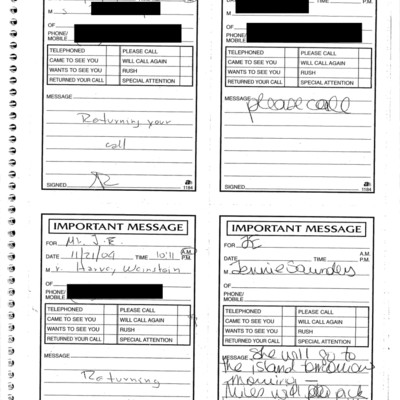 M
OF
PHONE/
MOBILE
TELEPHONED PLEASE CALL
CAME TO SEE YOU WILL CALL AGAIN
WANTS TO SEE YOU RUSH
RETURNED YOUR CALL SPECIAL ATTENTION
MESSAGE
Returning your
call
SIGNED
1184
DATE TIME P.M.
M
OF
PHONE/
MOBILE
TELEPHONED PLEASE CALL
CAME TO SEE YOU WILL CALL AGAIN
WANTS TO SEE YOU RUSH
RETURNED YOUR CALL SPECIAL ATTENTION
MESSAGE please call
SIGNED
1184
IMPORTANT MESSAGE
FOR Mr. J.E.
DATE 11/21/04 TIME 10:11 A.M. P.M.
M r. Harvey Weinstein
OF
PHONE/
MOBILE
TELEPHONED PLEASE CALL
CAME TO SEE YOU WILL CALL AGAIN
WANTS TO SEE YOU RUSH
RETURNED YOUR CALL SPECIAL ATTENTION
MESSAGE
Returning
IMPORTANT MESSAGE
FOR JE
DATE TIME A.M. P.M.
M Jennie Saunders
OF
PHONE/
MOBILE
TELEPHONED PLEASE CALL
CAME TO SEE YOU WILL CALL AGAIN
WANTS TO SEE YOU RUSH
RETURNED YOUR CALL SPECIAL ATTENTION
MESSAGE She will go to
the island tomorrow
morning —
Miles will pick